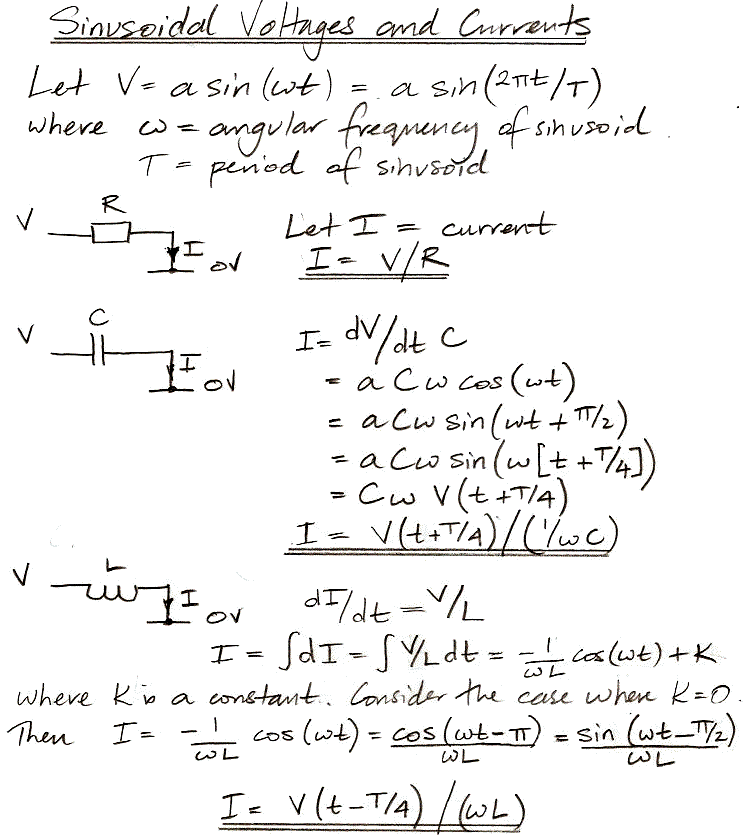 Sinusoidal Voltages and Currents
Let V = a sin (ωt) = a sin (2πt/T)
where ω = angular frequency of sinusoid.
T = period of sinusoid
V R I 0V
Let I = current
I = V/R
V C I 0V
I = dV/dt C
= a C ω cos (ωt)
= a C ω sin (ωt + π/2)
= a C ω sin (ω[t + T/4])
= C ω V (t + T/4)
I = V(t+T/4)/(1/ωC)
V L I 0V
dI/dt = V/L
I = ∫dI = ∫V/L dt = -1/ωL cos(ωt) + K
where K is a constant. Consider the case when K=0.
Then I = -1/ωL cos (ωt) = cos (ωt-π)/ωL = sin (ωt-π/2)/ωL
I = V(t-T/4)/(ωL)